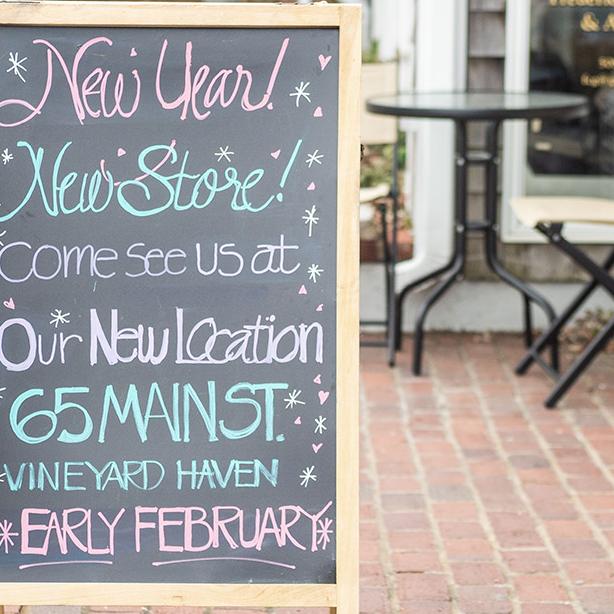 New Year!
New Store!
Come see us at
Our New Location
65 MAIN ST.
VINEYARD HAVEN
EARLY FEBRUARY